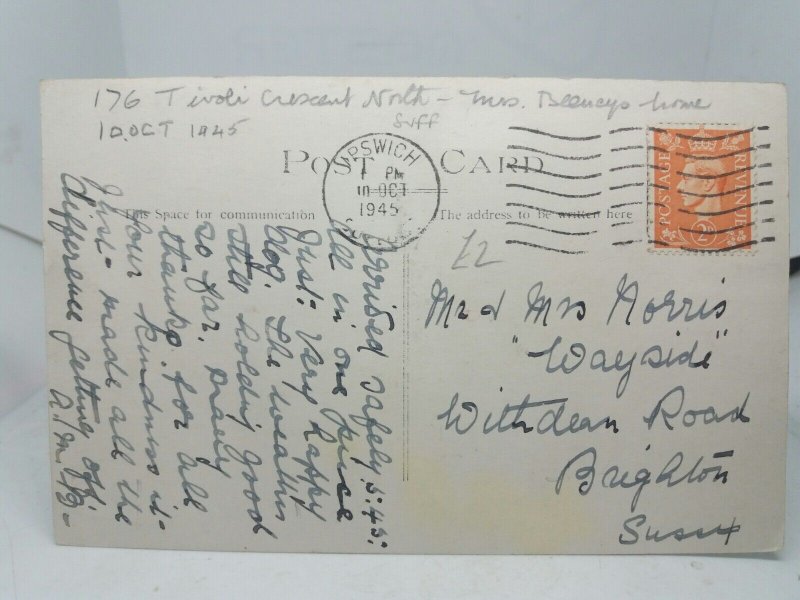 176 Tivoli Crescent North - Mrs. Beeneys home
10 OCT 1945
Suff
POST CARD
IPSWICH
PM
10 OCT
1945
POSTAGE
REVENUE
2D
This Space for communication
The address to be written here
£2
Mr & Mrs Norris
"Wayside"
Withdean Road
Brighton
Sussex
Arrived safely 5.45:
all in one piece
Just: Very happy
dog. The weather
still holding good
so far. Many
thanks for all
your kindness it
just made all the
difference getting off.